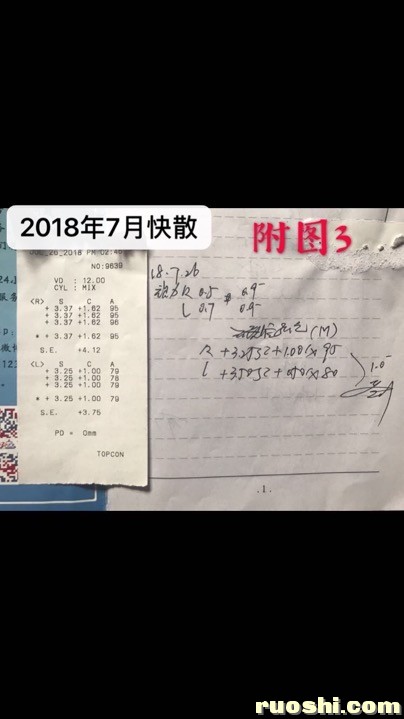 2018年7月快散
附图3
JUL_26_2018 PM 02:46
NO:9639
VD : 12.00
CYL : MIX
<R> S C A
+ 3.37 +1.62 95
+ 3.37 +1.62 95
+ 3.37 +1.62 96
* + 3.37 +1.62 95
S.E. +4.12
<L> S C A
+ 3.25 +1.00 79
+ 3.25 +1.00 78
+ 3.25 +1.00 79
* + 3.25 +1.00 79
S.E. +3.75
PD = 0mm
TOPCON
18.7.26
视力 R 0.5
L 0.7
(M)
R +3.25DS +1.00 x 95
L +3.50DS + x 80
1.0
.1.
ruoshi.com